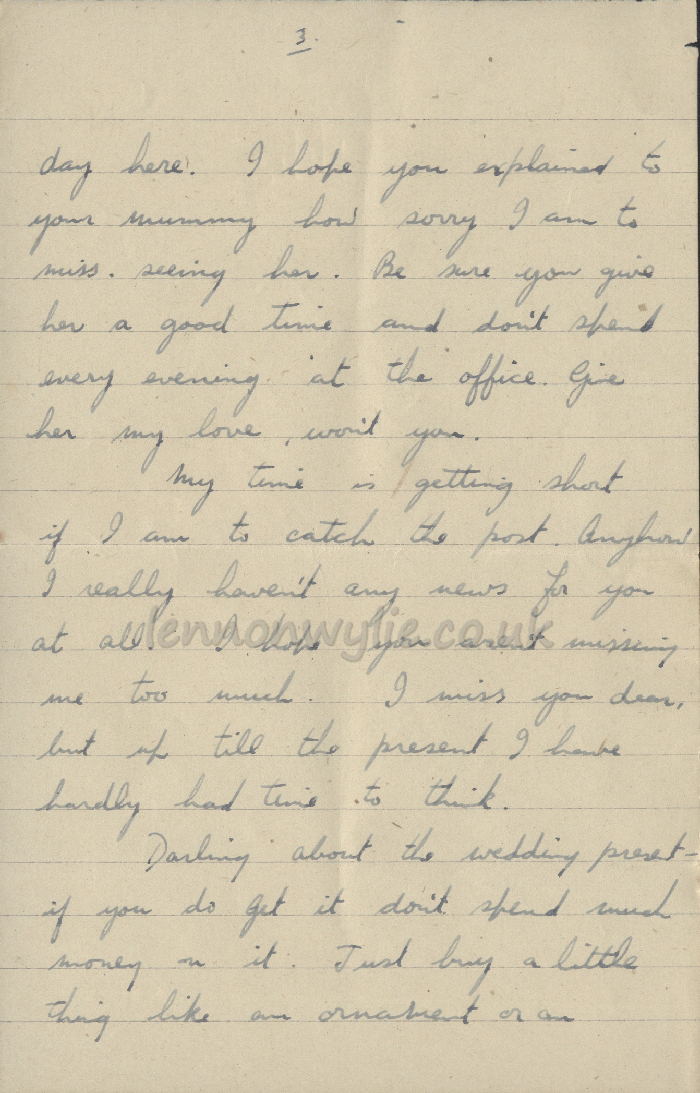 3.
day here. I hope you explained to
your mummy how sorry I am to
miss. seeing her. Be sure you give
her a good time and don't spend
every evening at the office. Give
her my love, won't you.
My time is getting short
if I am to catch the post. Anyhow
I really haven't any news for you
at all. I hope you aren't missing
lennonwylie.co.uk
me too much. I miss you dear,
but up till the present I have
hardly had time to think.
Darling about the wedding present-
if you do get it don't spend much
money on it. Just buy a little
thing like an ornament or an